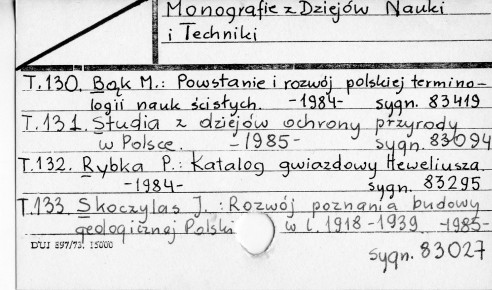 Monografie z Dziejów Nauki
i Techniki
T.130. Bąk M.: Powstanie i rozwój polskiej termino-
logii nauk ścisłych. -1984- sygn. 83419
T.131. Studia z dziejów ochrony przyrody
w Polsce. -1985- sygn. 83094
T.132. Rybka P.: Katalog gwiazdowy Heweliusza
-1984- sygn. 83295
T.133. Skoczylas J.: Rozwój poznania budowy
geologicznej Polski w l. 1918-1939 -1985-
DUJ 897/73. 15000
sygn. 83027